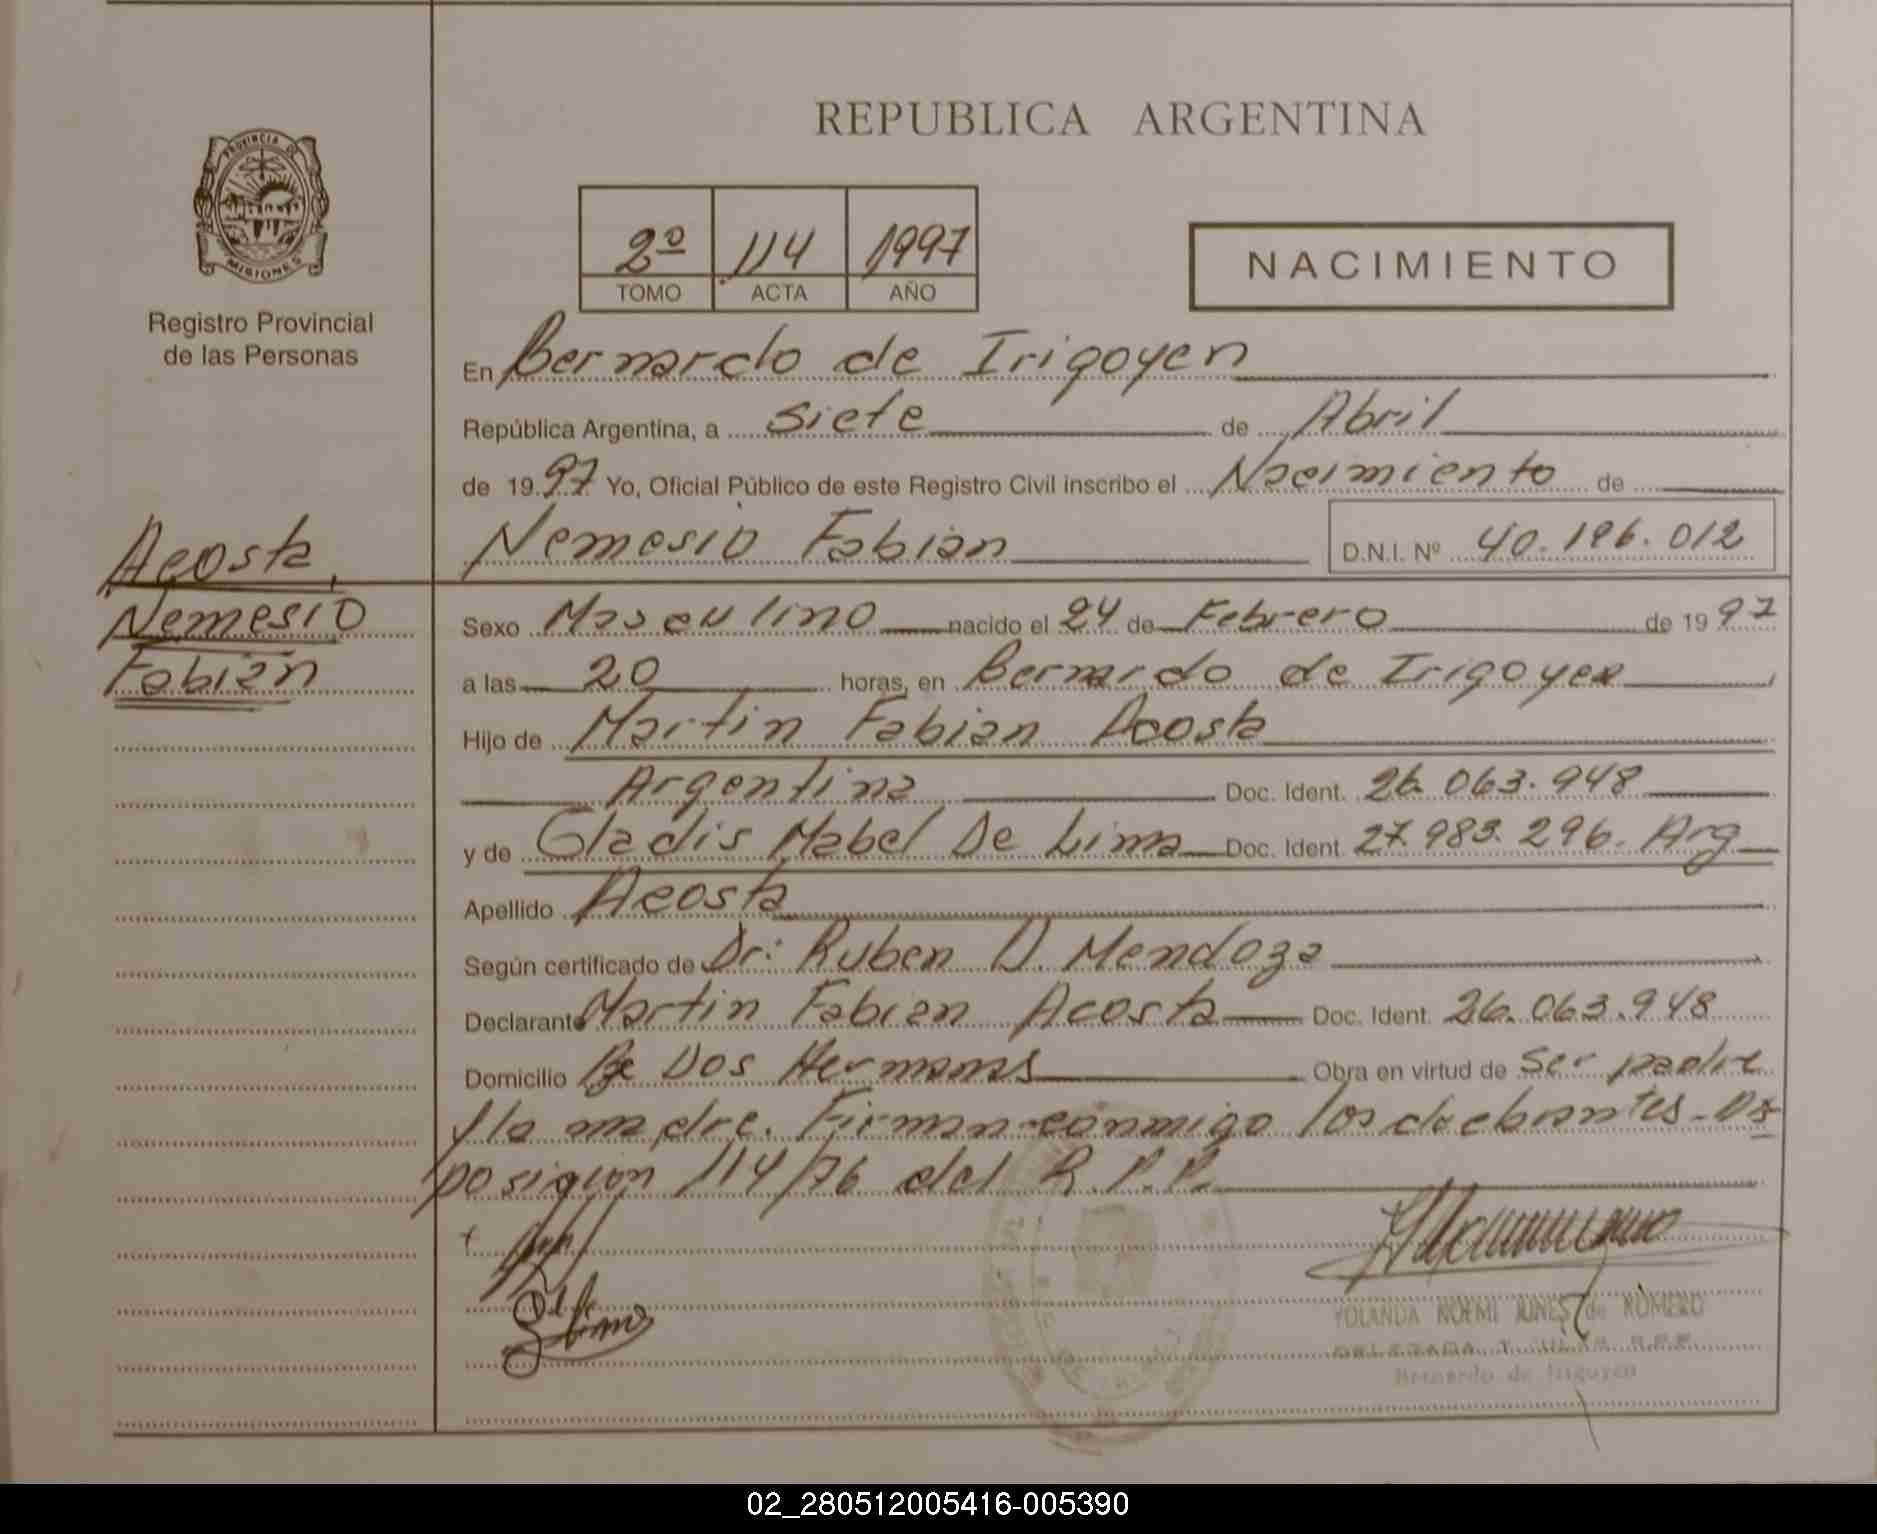 PROVINCIA DE
MISIONES
Registro Provincial
de las Personas
REPUBLICA ARGENTINA
2º 114 1997
TOMO ACTA AÑO
NACIMIENTO
En Bernardo de Irigoyen
República Argentina, a siete de Abril
de 1997 Yo, Oficial Público de este Registro Civil inscribo el Nacimiento de
Nemesio Fabian D.N.I. Nº 40.196.012
Acosta,
Nemesio
Fabian
Sexo Masculino nacido el 24 de Febrero de 1997
a las 20 horas, en Bernardo de Irigoyen
Hijo de Martin Fabian Acosta
Argentina Doc. Ident. 26.063.948
y de Gladis Mabel De Lima Doc. Ident. 27.983.296. Arg
Apellido Acosta
Según certificado de Dr: Ruben D. Mendoza
Declarante Martin Fabian Acosta Doc. Ident. 26.063.948
Domicilio Dos Hermanas Obra en virtud de ser padre
y la madre. Firman conmigo los declarantes - Dis
posición 114/76 del R.P.P.
YOLANDA NOEMI de ROMERO
DELEGADA R.P.P.
Bernardo de Irigoyen
02_280512005416-005390